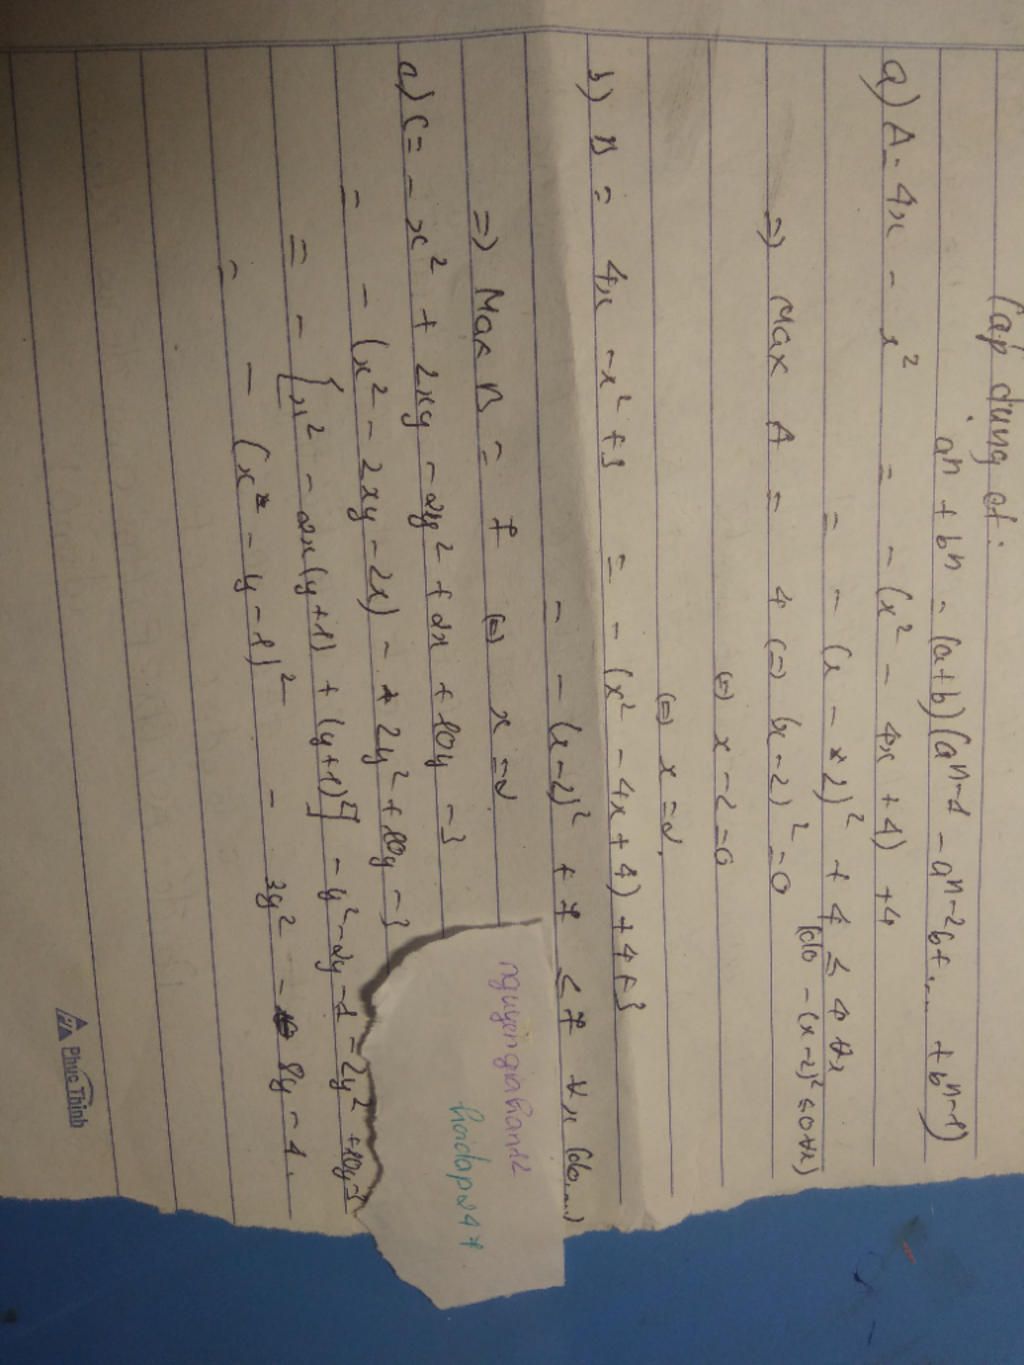 (áp dụng ct:
aⁿ + bⁿ = (a+b)(aⁿ⁻¹ - aⁿ⁻²b+.... + bⁿ⁻¹)
a) A = 4x - x² = - (x² - 4x + 4) + 4
= - (x - 2)² + 4 ≤ 4 ∀x
(do - (x-2)² ≤ 0 ∀x)
=> Max A = 4 (=) (x-2)² = 0
(=) x - 2 = 0
(=) x = 2
b) B = 4x - x² + 3 = - (x² - 4x + 4) + 4 + 3
= - (x-2)² + 7 ≤ 7 ∀x (do,...)
=> Max B = 7 (=) x = 2
a) C = - x² + 2xy - 2y² + 2x + 10y - 3
= - (x² - 2xy - 2x) - 2y² + 10y - 3
= - [x² - 2x(y+1) + (y+1)²] - y² - 2y - 1 = 2y² + 10y - 3
= - (x - y - 1)² - 3y² - 8y - 4.
nguyengiahan12
hoidap247
Phuc Thinh